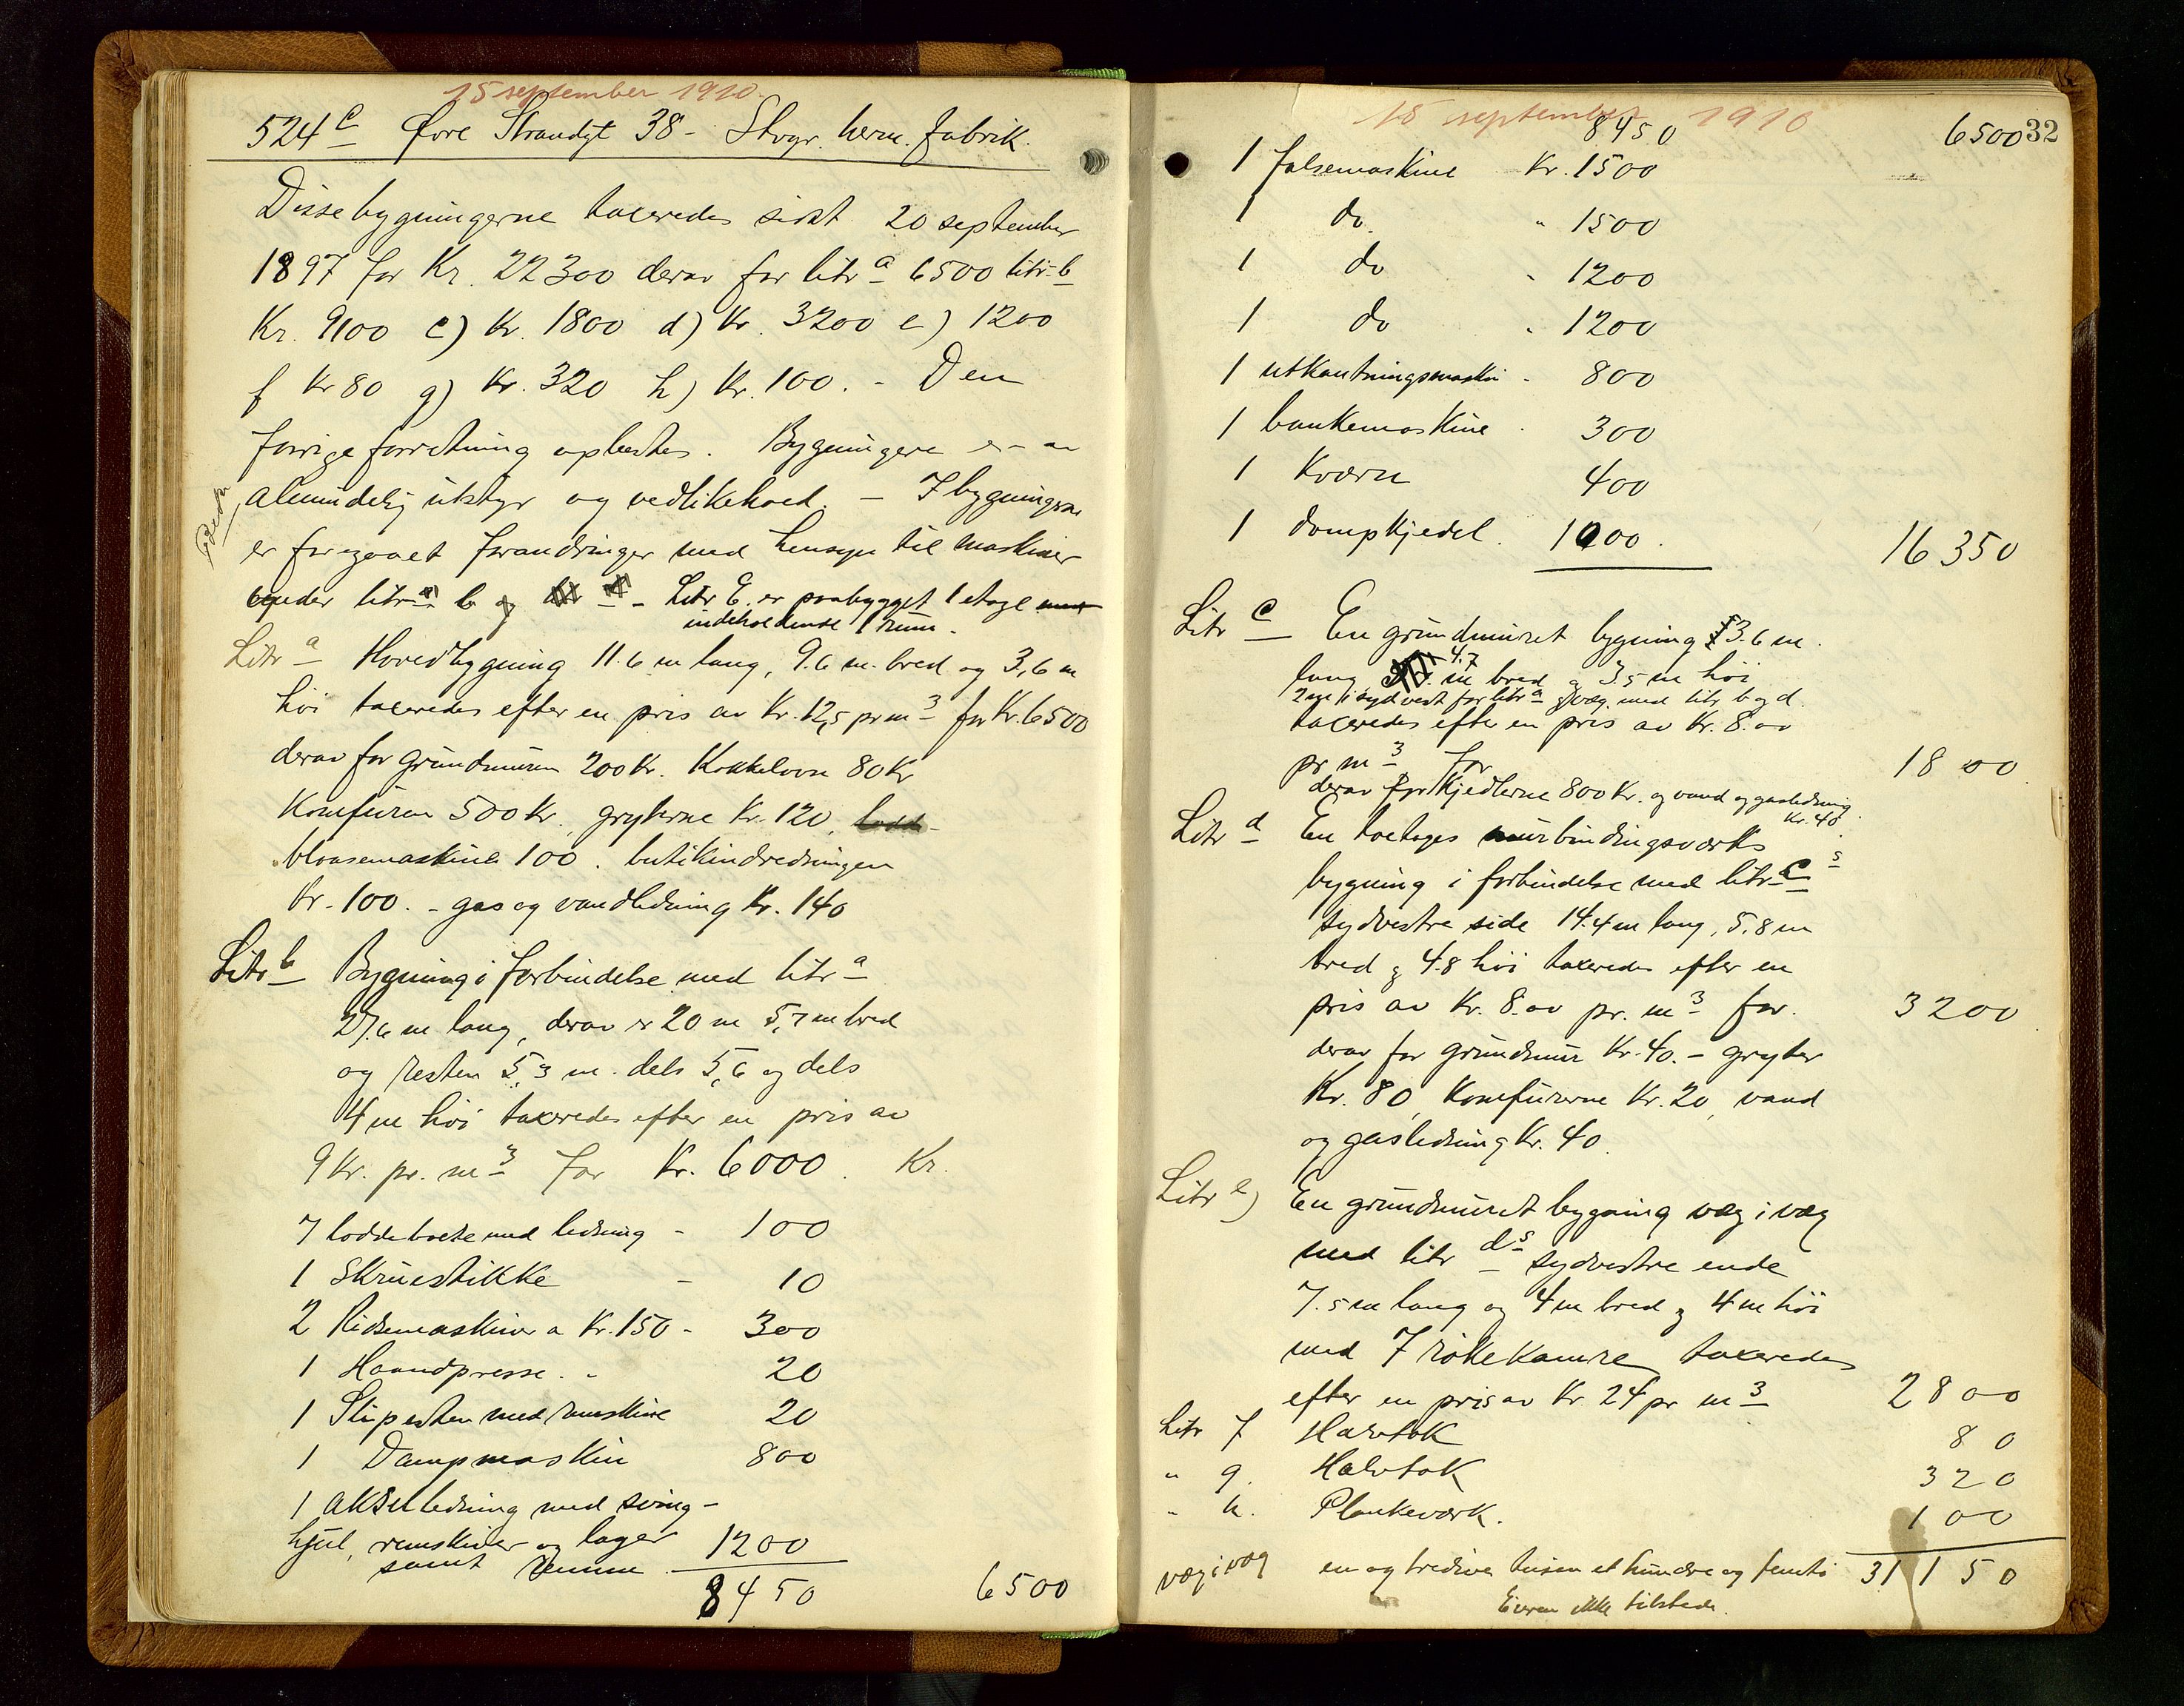 15 september 1910.
524 c Øvre Strandgt 38 - Stvgr. herm. fabrik.
Disse bygningerne taxeredes sidst 20 september
1897 for Kr. 22300 derav for litr a 6500 litr b
Kr. 9100 c) Kr. 1800 d) Kr. 3200 e) 1200
f Kr 80 g) Kr. 320 h) Kr. 100. - Den
forrige forretning oplæstes. Bygningerne er av
almindelig utstyr og vedlikehold. - I bygningerne
er foregaaet forandringer med hensyn til maskiner
under litra a) b og - Litr E. er paabygget 1 etage
indeholdende 1 rum.
Litr a Hovedbygning 11.6 m lang, 9.6 m. bred og 3,6 m
høi taxeredes efter en pris av Kr. 12,5 pr m3 for Kr. 6500
derav for grundmuren 200 Kr. Kakkelovn 80 Kr
Komfuren 500 Kr. gryterne Kr. 120,
blaasemaskine 100. butikindredningen
Kr. 100. - gas og vandledning Kr. 140
Litr b Bygning i forbindelse med litr a
27.6 m lang, derav er 20 m 5,7 m bred
og resten 5,3 m. dels 5,6 og dels
4 m høi taxeredes efter en pris av
9 Kr. pr. m3 for Kr. 6000. Kr.
7 loddeborde med ledning - 100
1 Skruestikke - 10
2 Ridsemaskiner a Kr. 150 - 300
1 Haandpresse . - 20
1 Slipesten med remskive 20
1 Dampmaskin 800
1 Akselledning med sving-
hjul, remskiver og lager
samt remme. 1200
8450 6500
15 september 1910
8450 6500 32
1 falsemaskine Kr. 1500
1 do. " 1500
1 do " 1200
1 do " 1200
1 utkantningsmaskin - 800
1 bankemaskine . 300
1 Kværn 400
1 dampkjedel. 1000. 16350
Litr c En grundmuret bygning 3.6 m.
lang 4.7 m bred og 3.5 m høi
2 m i sydvest for litr a væg. med litr b og d.
taxeredes efter en pris av Kr. 8.00
pr m3 for 1800
derav for kjedlerne 800 Kr. og vand og gasledning
Kr. 40.
Litr d En toetages murbindingsværks
bygning i forbindelse med litr c s
sydvestre side 14.4 m lang, 5.8 m
bred og 4.8 høi taxeredes efter en
pris av Kr. 8.00 pr. m3 for. 3200
derav for grundmur Kr. 40. - gryter
Kr. 80, Komfurerne Kr. 20, vand
og gasledning Kr. 40.
Litr e) En grundmuret bygning væg i væg
med litr d s sydvestre ende
7.5 m lang og 4 m bred og 4 m høi
med 7 røkekamre taxeredes
efter en pris av Kr. 24 pr m3 2800
Litr f Halvtak 80
" g. Halvtak 320
" h. Plankeværk. 100
væg i væg en og tredive tusen et hundre og femti 31150
Eieren ikke tilstede.